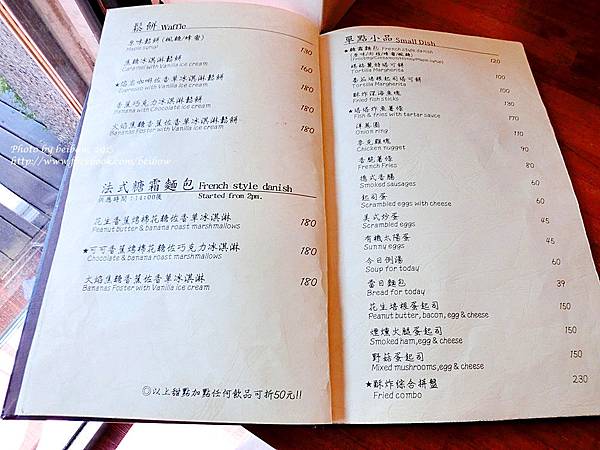 鬆餅 Waffle
原味鬆餅 (楓糖/蜂蜜) 130
Maple syrup
焦糖冰淇淋鬆餅 160
Caramel with Vanilla ice cream
冰淇淋鬆餅 180
Espresso with Vanilla ice cream
香蕉巧克力冰淇淋鬆餅 180
Banana with Chocolate ice cream
火焰焦糖香蕉佐香草冰淇淋鬆餅 180
Bananas Foster with Vanilla ice cream
法式糖霜麵包 French style danish
供應時間:14:00後 Started from 2pm.
花生香蕉烤棉花糖佐香草冰淇淋 180
Peanut butter & banana roast marshmallows
★可可香蕉烤棉花糖佐巧克力冰淇淋 180
Chocolate & banana roast marshmallows
火焰焦糖香蕉佐香草冰淇淋 180
Bananas Foster with Vanilla ice cream
◎以上甜點加點任何飲品可折50元!!
單點小品 Small Dish
★糖霜麵包 French style danish 120
Tortilla Margherita
Tortilla Margherita
酥炸深海魚塊
Fried fish sticks
炸魚薯條
Fish & fries with tartar sauce 170
洋蔥圈 110
Onion ring
麥克雞塊 90
Chicken nugget
香脆薯條 80
French Fries
德式香腸 60
Smoked sausages
起司蛋 60
Scrambled eggs with cheese
美式炒蛋 45
Scrambled eggs
有機太陽蛋 45
Sunny eggs
今日例湯 60
Soup for today
當日麵包 39
Bread for today
花生培根蛋起司 150
Peanut butter, bacon, egg & cheese
煙燻火腿蛋起司 150
Smoked ham, egg & cheese
野菇蛋起司 150
Mixed mushrooms, egg & cheese
★酥炸綜合拼盤 230
Fried combo
Photo by beibow, 2015
http://www.facebook.com/beibow